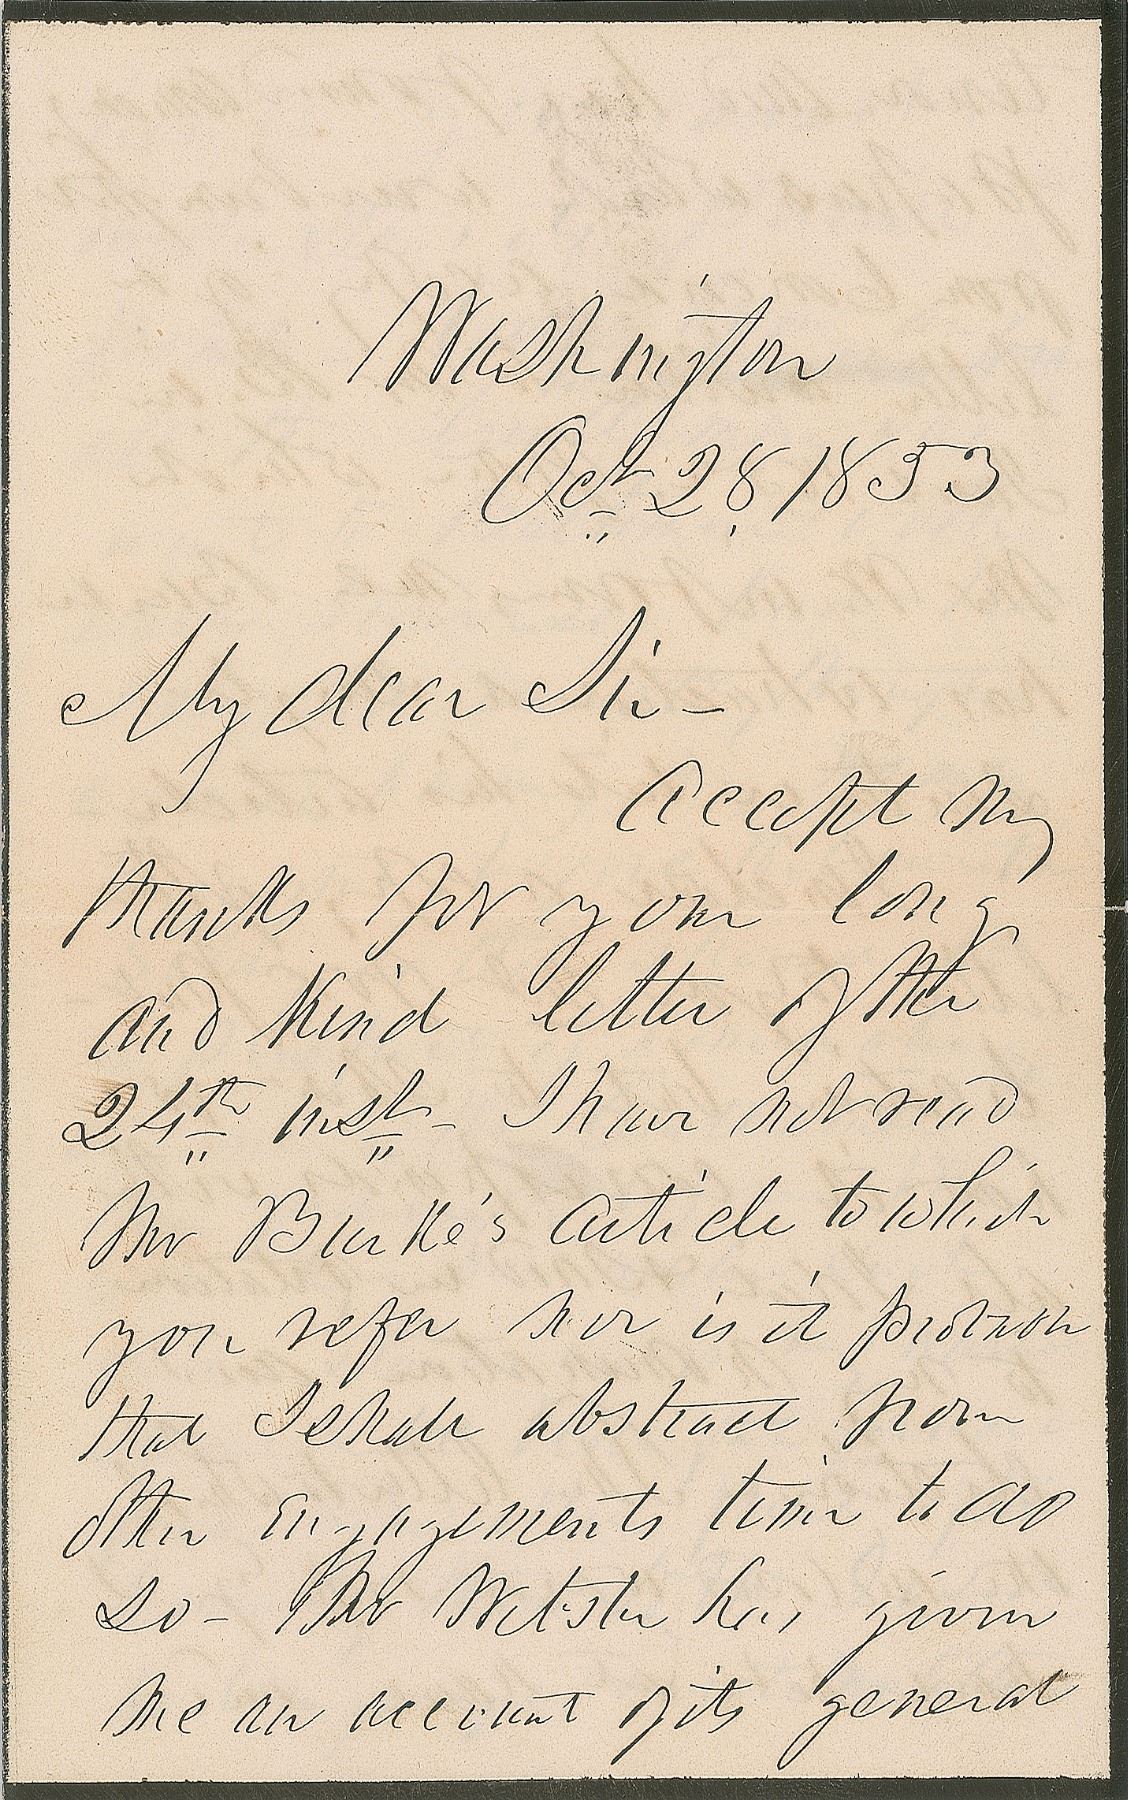 Washington
Oct 28, 1853
My dear Sir -
Accept my
thanks for your long
and kind letter of the
24th inst - I have not read
Mr Burke's article to which
you refer nor is it
that I shall abstract from
other engagements time to do
so - Mr Webster has given
me an account of its general